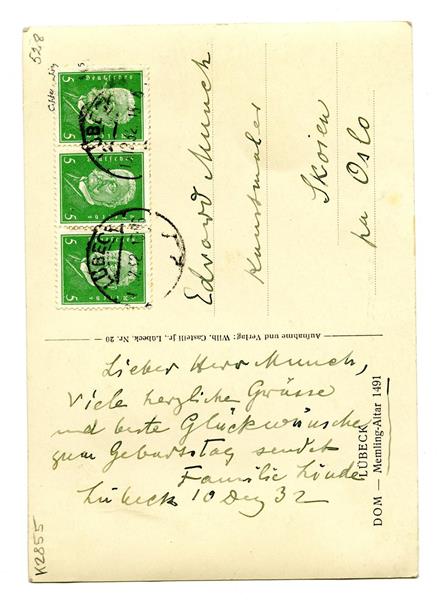 528
Edvard Munch
Kunstmaler
Skoien
pa Oslo
Deutsches Reich
5 5
Deutsches Reich
5 5
Deutsches Reich
5 5
LÜBECK
LÜBECK
Aufnahme und Verlag: Wilh. Castelli jr., Lübeck, Nr. 20
Lieber Herr Munch,
Viele herzliche Grüsse
und beste Glückwünsche
zum Geburtstag sendet
Familie Linde
Lübeck 10 Dez 32
LÜBECK
DOM — Memling-Altar 1491
K2855